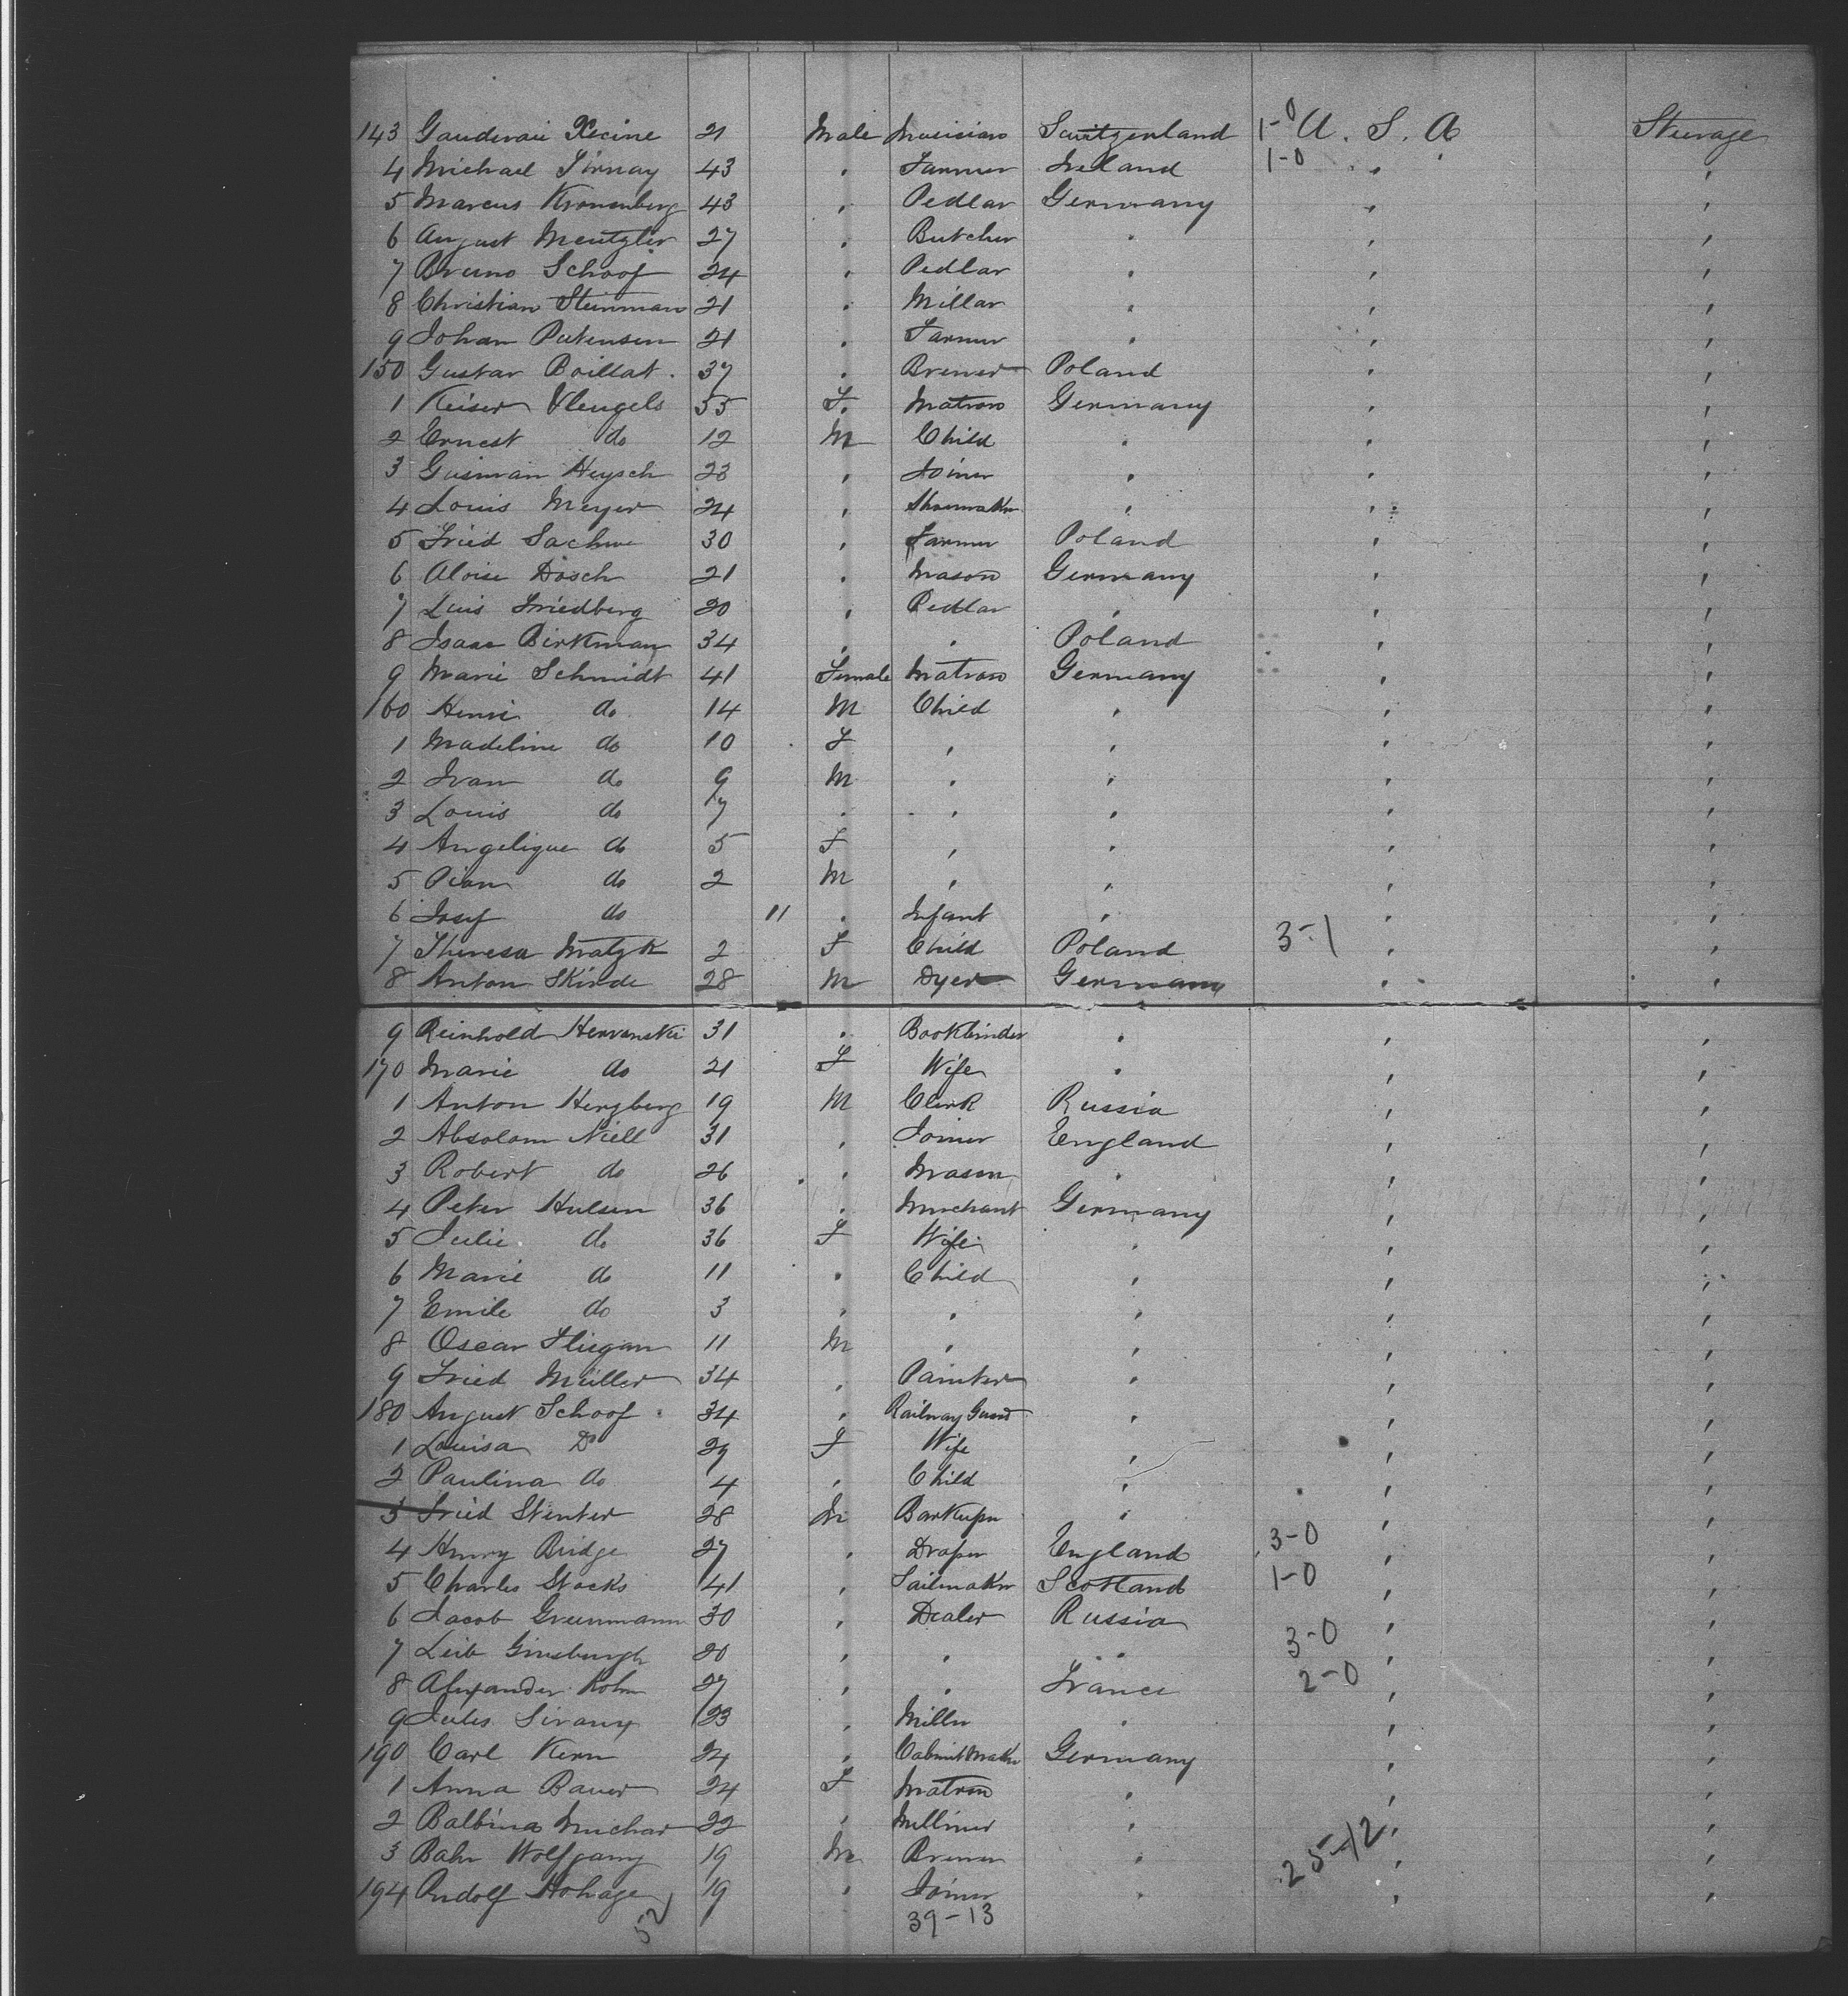 143 Gauderaii Xecine 21 Male Musician Switzerland 1-0 U. S. A Steerage
4 Michael 43 " Farmer Ireland 1-0 " "
5 Marcus Kronenberg 43 " Pedlar Germany " "
6 August Mentzler 27 " Butcher " " "
7 Bruno Schoof 24 " Pedlar " " "
8 Christian Steinman 21 " Millar " " "
9 Johan Petersen 21 " Farmer " " "
150 Gustav Boillat 37 " Brewer Poland " "
1 Keiser Vleugels 55 F. Matron Germany " "
2 Ernest do 12 M Child " " "
3 Gusman Heysch 23 " Joiner " " "
4 Louis Meyer 24 " Shoemaker " " "
5 Fried Sachwe 30 " Farmer Poland " "
6 Aloise Dosch 21 " Mason Germany " "
7 Luis Friedberg 20 " Pedlar " " "
8 Isaac Birkman 34 " " Poland " "
9 Marie Schmidt 41 Female Matron Germany " "
160 Henri do 14 M Child " " "
1 Madeline do 10 F " " " "
2 Ivan do 9 M " " " "
3 Louis do 7 " " " " "
4 Angelique do 5 F " " " "
5 Pian do 2 M " " " "
6 Josef do 11 " Infant " " "
7 Theresa Matzk 2 F Child Poland 3-1 " "
8 Anton Skinde 28 M Dyer Germany " "
9 Reinhold Hervenski 31 " Bookbinder " " "
170 Marie do 21 F Wife " " "
1 Anton Herzberg 19 M Clerk Russia " "
2 Absolom Niell 31 " Joiner England " "
3 Robert do 26 " Mason " " "
4 Peter Hulsen 36 " Merchant Germany " "
5 Julie do 36 F Wife " " "
6 Marie do 11 " Child " " "
7 Emile do 3 " " " " "
8 Oscar Fliegan 11 M " " " "
9 Fried Müller 34 " Painter " " "
180 August Schoof 34 " Railway Guard " " "
1 Louisa Do 29 F Wife " " "
2 Paulina do 4 " Child " " "
3 Fried Stenter 28 M Barkeeper " " "
4 Henry Bridge 27 " Draper England 3-0 " "
5 Charles Stocks 41 " Sailmaker Scotland 1-0 " "
6 Jacob Greenmann 30 " Dealer Russia " "
7 Leib Ginsburgh 20 " " " 3-0 " "
8 Alexander Kohn 27 " " France 2-0 " "
9 Jules Sirany 23 " Miller " " "
190 Carl Kern 24 " Cabinetmaker Germany " "
1 Anna Bauer 24 F Matron " " "
2 Balbina Muchar 22 " Milliner " " "
3 Bahr Wolfgang 19 M Brewer " 25-12 " "
194 Rudolf Hohage 19 " Joiner " " "
52 39-13